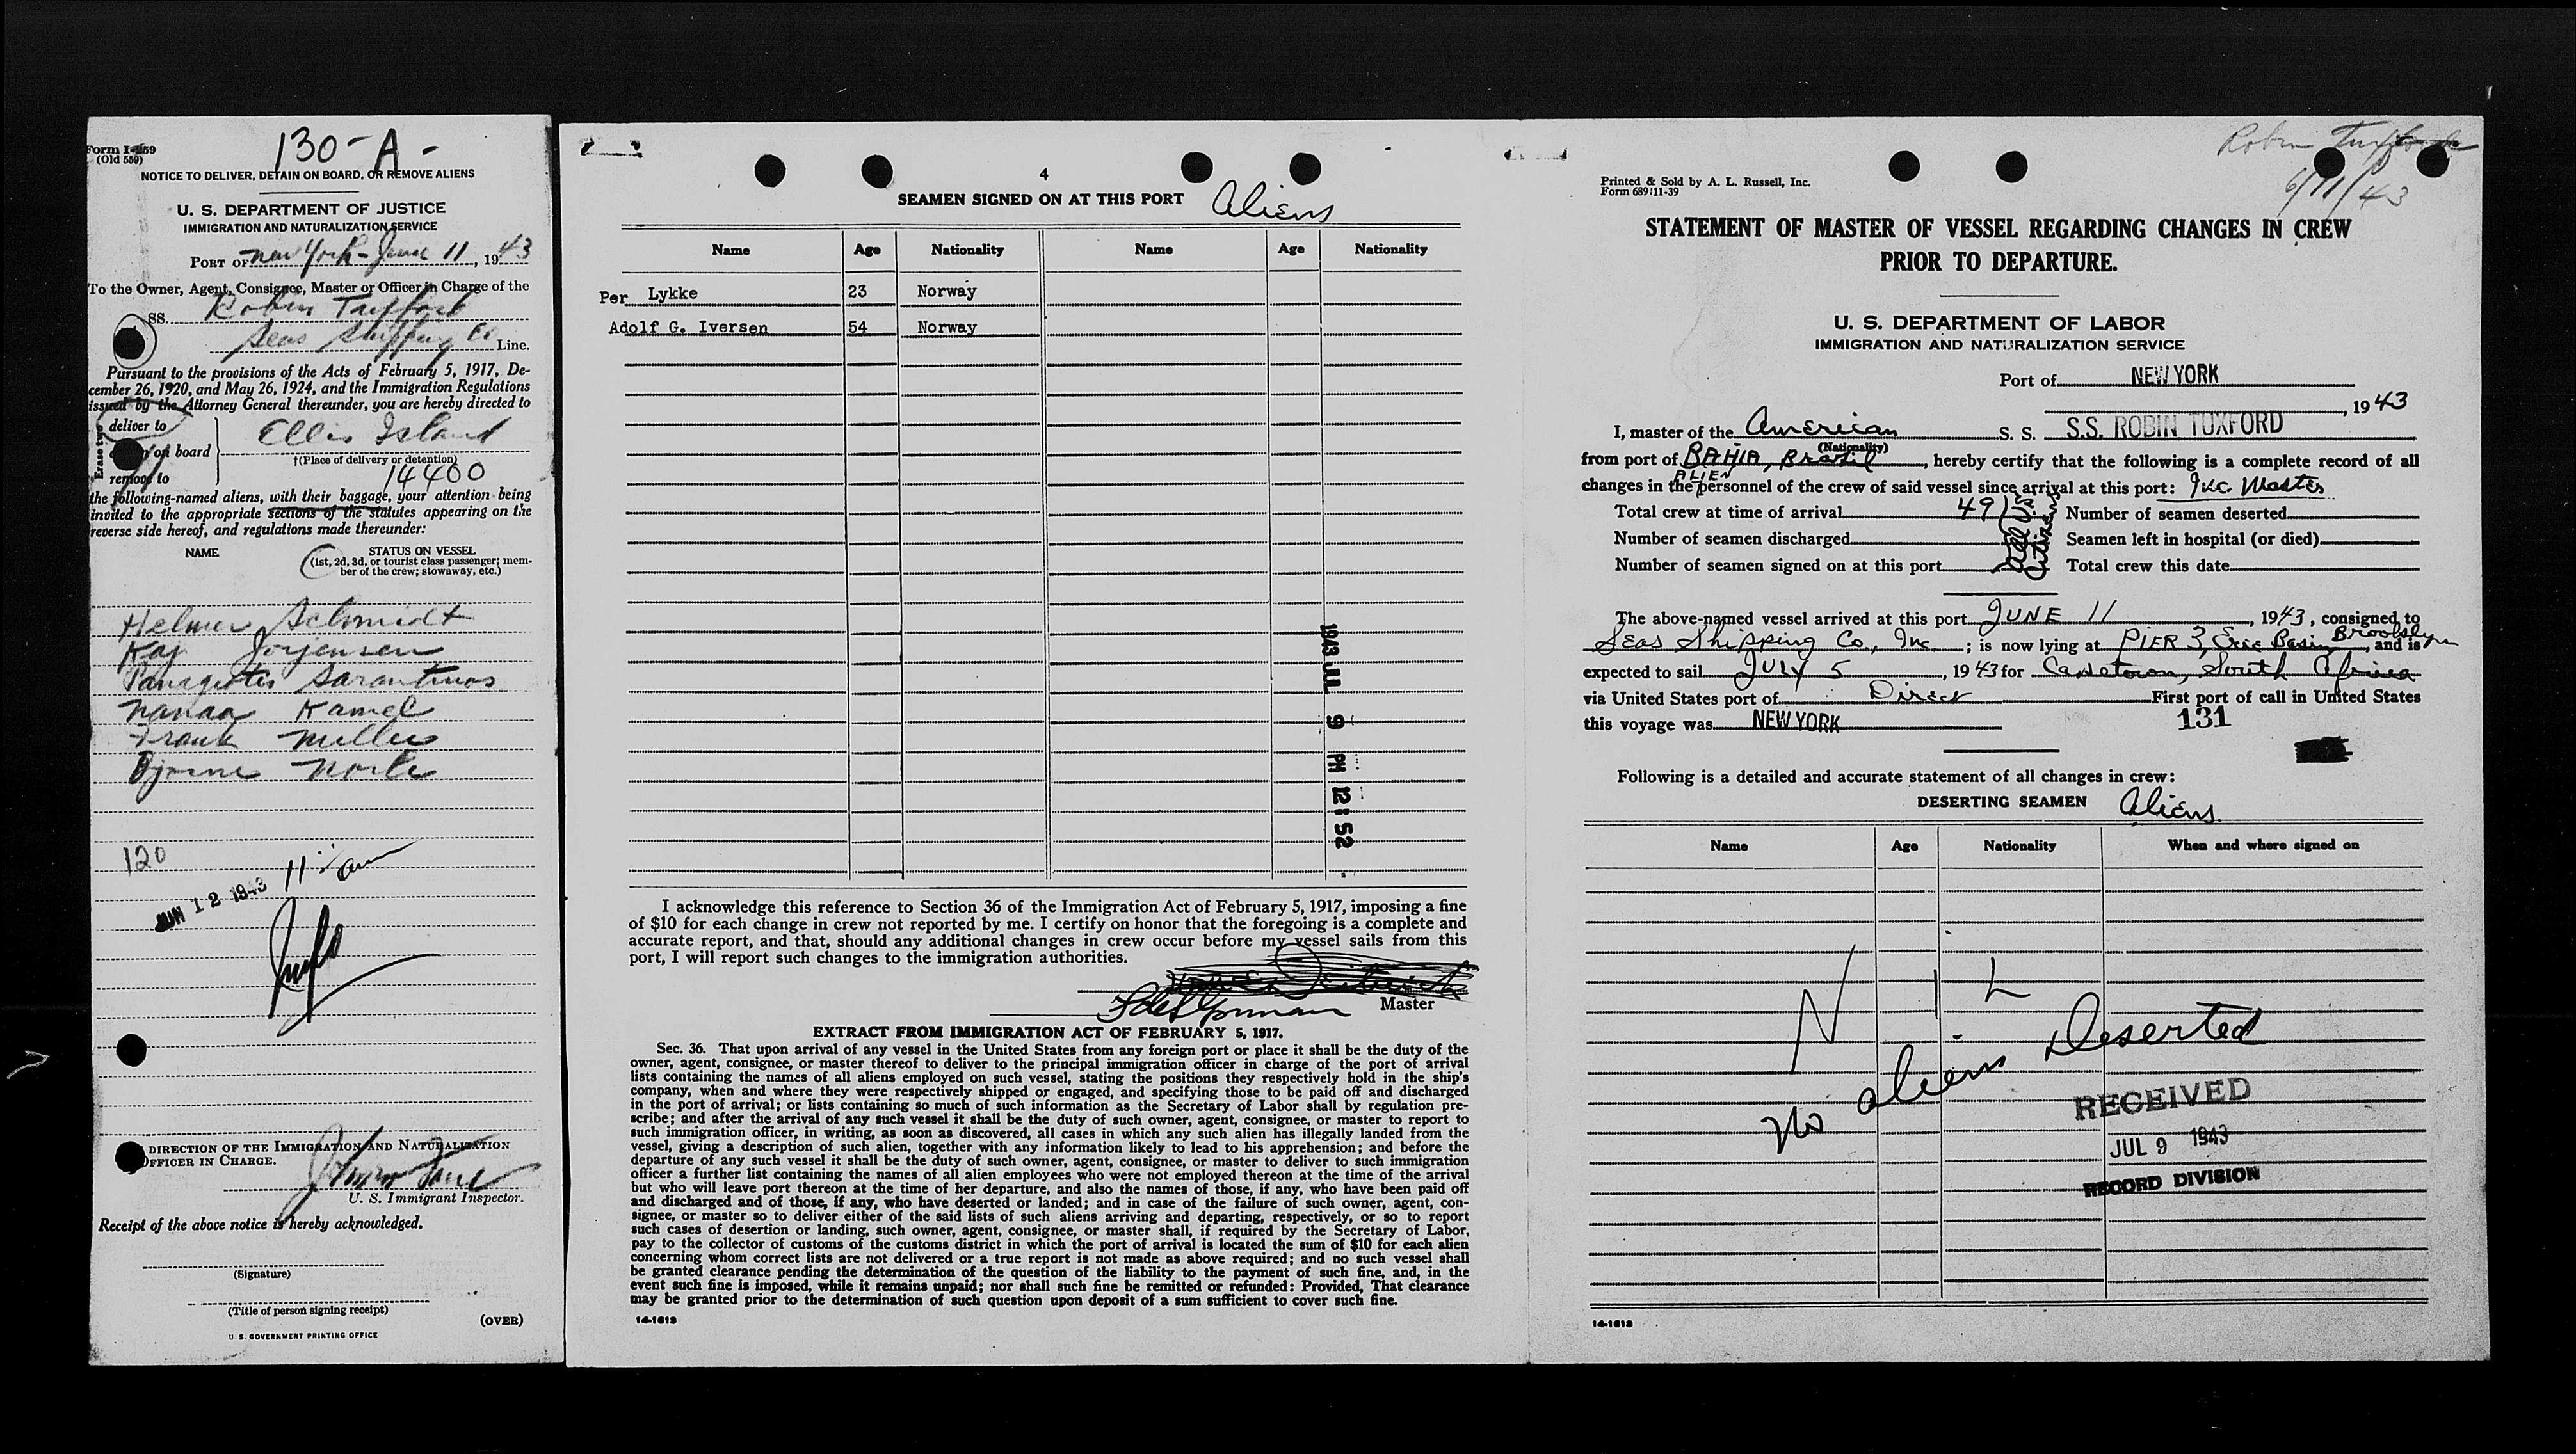 Form I-259
(Old 559)
130-A-
NOTICE TO DELIVER, DETAIN ON BOARD, OR REMOVE ALIENS
U. S. DEPARTMENT OF JUSTICE
IMMIGRATION AND NATURALIZATION SERVICE
PORT OF New York - June 11, 1943
To the Owner, Agent, Consignee, Master or Officer in Charge of the
SS. Robin Tuxford
Seas Shipping Co Line.
Pursuant to the provisions of the Acts of February 5, 1917, De-
cember 26, 1920, and May 26, 1924, and the Immigration Regulations
issued by the Attorney General thereunder, you are hereby directed to
Erase two
deliver to
Ellis Island
on board
†(Place of delivery or detention)
remove to
14400
the following-named aliens, with their baggage, your attention being
invited to the appropriate sections of the statutes appearing on the
reverse side hereof, and regulations made thereunder:
NAME
STATUS ON VESSEL
(1st, 2d, 3d, or tourist class passenger; mem-
ber of the crew; stowaway, etc.)
Helmer Schmidt
Kaj Jorjensen
Panagiotis Sarantinos
Kamel
Frank
Bjorne
120
11 am
JUN 12 1943
DIRECTION OF THE IMMIGRATION AND NATURALIZATION
OFFICER IN CHARGE.
U. S. Immigrant Inspector.
Receipt of the above notice is hereby acknowledged.
(Signature)
(Title of person signing receipt)
(OVER)
U. S. GOVERNMENT PRINTING OFFICE
4
SEAMEN SIGNED ON AT THIS PORT Aliens
Name Age Nationality Name Age Nationality
Per Lykke 23 Norway
Adolf G. Iversen 54 Norway
1943 JUL 9 PM 12:52
I acknowledge this reference to Section 36 of the Immigration Act of February 5, 1917, imposing a fine
of $10 for each change in crew not reported by me. I certify on honor that the foregoing is a complete and
accurate report, and that, should any additional changes in crew occur before my vessel sails from this
port, I will report such changes to the immigration authorities.
Master
EXTRACT FROM IMMIGRATION ACT OF FEBRUARY 5, 1917.
Sec. 36. That upon arrival of any vessel in the United States from any foreign port or place it shall be the duty of the
owner, agent, consignee, or master thereof to deliver to the principal immigration officer in charge of the port of arrival
lists containing the names of all aliens employed on such vessel, stating the positions they respectively hold in the ship's
company, when and where they were respectively shipped or engaged, and specifying those to be paid off and discharged
in the port of arrival; or lists containing so much of such information as the Secretary of Labor shall by regulation pre-
scribe; and after the arrival of any such vessel it shall be the duty of such owner, agent, consignee, or master to report to
such immigration officer, in writing, as soon as discovered, all cases in which any such alien has illegally landed from the
vessel, giving a description of such alien, together with any information likely to lead to his apprehension; and before the
departure of any such vessel it shall be the duty of such owner, agent, consignee, or master to deliver to such immigration
officer a further list containing the names of all alien employees who were not employed thereon at the time of the arrival
but who will leave port thereon at the time of her departure, and also the names of those, if any, who have been paid off
and discharged and of those, if any, who have deserted or landed; and in case of the failure of such owner, agent, con-
signee, or master so to deliver either of the said lists of such aliens arriving and departing, respectively, or so to report
such cases of desertion or landing, such owner, agent, consignee, or master shall, if required by the Secretary of Labor,
pay to the collector of customs of the customs district in which the port of arrival is located the sum of $10 for each alien
concerning whom correct lists are not delivered or a true report is not made as above required; and no such vessel shall
be granted clearance pending the determination of the question of the liability to the payment of such fine, and, in the
event such fine is imposed, while it remains unpaid; nor shall such fine be remitted or refunded: Provided, That clearance
may be granted prior to the determination of such question upon deposit of a sum sufficient to cover such fine.
14-1613
Robin Tuxford
6/11/43
Printed & Sold by A. L. Russell, Inc.
Form 689 11-39
STATEMENT OF MASTER OF VESSEL REGARDING CHANGES IN CREW
PRIOR TO DEPARTURE.
U. S. DEPARTMENT OF LABOR
IMMIGRATION AND NATURALIZATION SERVICE
Port of NEW YORK
, 1943
I, master of the American S. S. S.S. ROBIN TUXFORD
(Nationality)
from port of BAHIA, Brazil, hereby certify that the following is a complete record of all
ALIEN
changes in the personnel of the crew of said vessel since arrival at this port: Inc. Master
Total crew at time of arrival 49 Number of seamen deserted
all US Citizens
Number of seamen discharged Seamen left in hospital (or died)
Number of seamen signed on at this port Total crew this date
The above-named vessel arrived at this port JUNE 11, 1943, consigned to
Seas Shipping Co., Inc; is now lying at PIER 3, Erie Basin Brooklyn, and is
expected to sail JULY 5, 1943 for Capetown, South Africa
via United States port of Direct First port of call in United States
this voyage was NEW YORK
131
Following is a detailed and accurate statement of all changes in crew:
DESERTING SEAMEN Aliens
Name Age Nationality When and where signed on
NIL
No aliens Deserted
RECEIVED
JUL 9 1943
RECORD DIVISION
14-1613